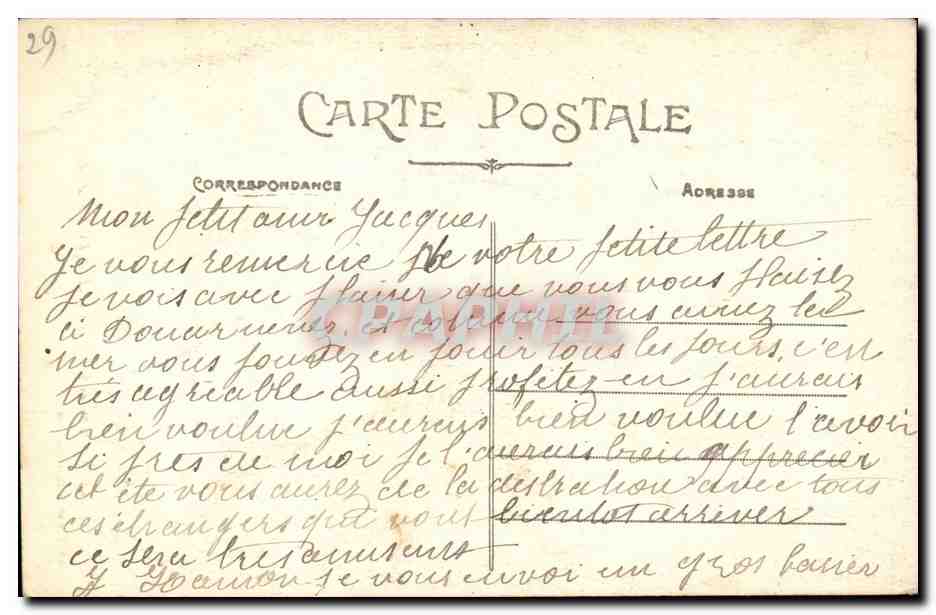 29
CARTE POSTALE
CORRESPONDANCE
ADRESSE
Mon petit ami Jacques
Je vous remercie de votre petite lettre
je vois avec plaisir que vous vous plaisez
a Douarnenez et vous aimez la
mer vous pouvez en jouir tous les jours, c'en
très agréable aussi profitez-en j'aurais
bien voulue j'aurais bien voulue l'avoir
si pres de moi je l'aurais bien apprecier
cet éte vous aurez de la distration avec tous
ces étrangers qui vous bientot arriver
ce sera tres amusant
Y Hamon je vous envoi un gros baiser
CPAPHIL